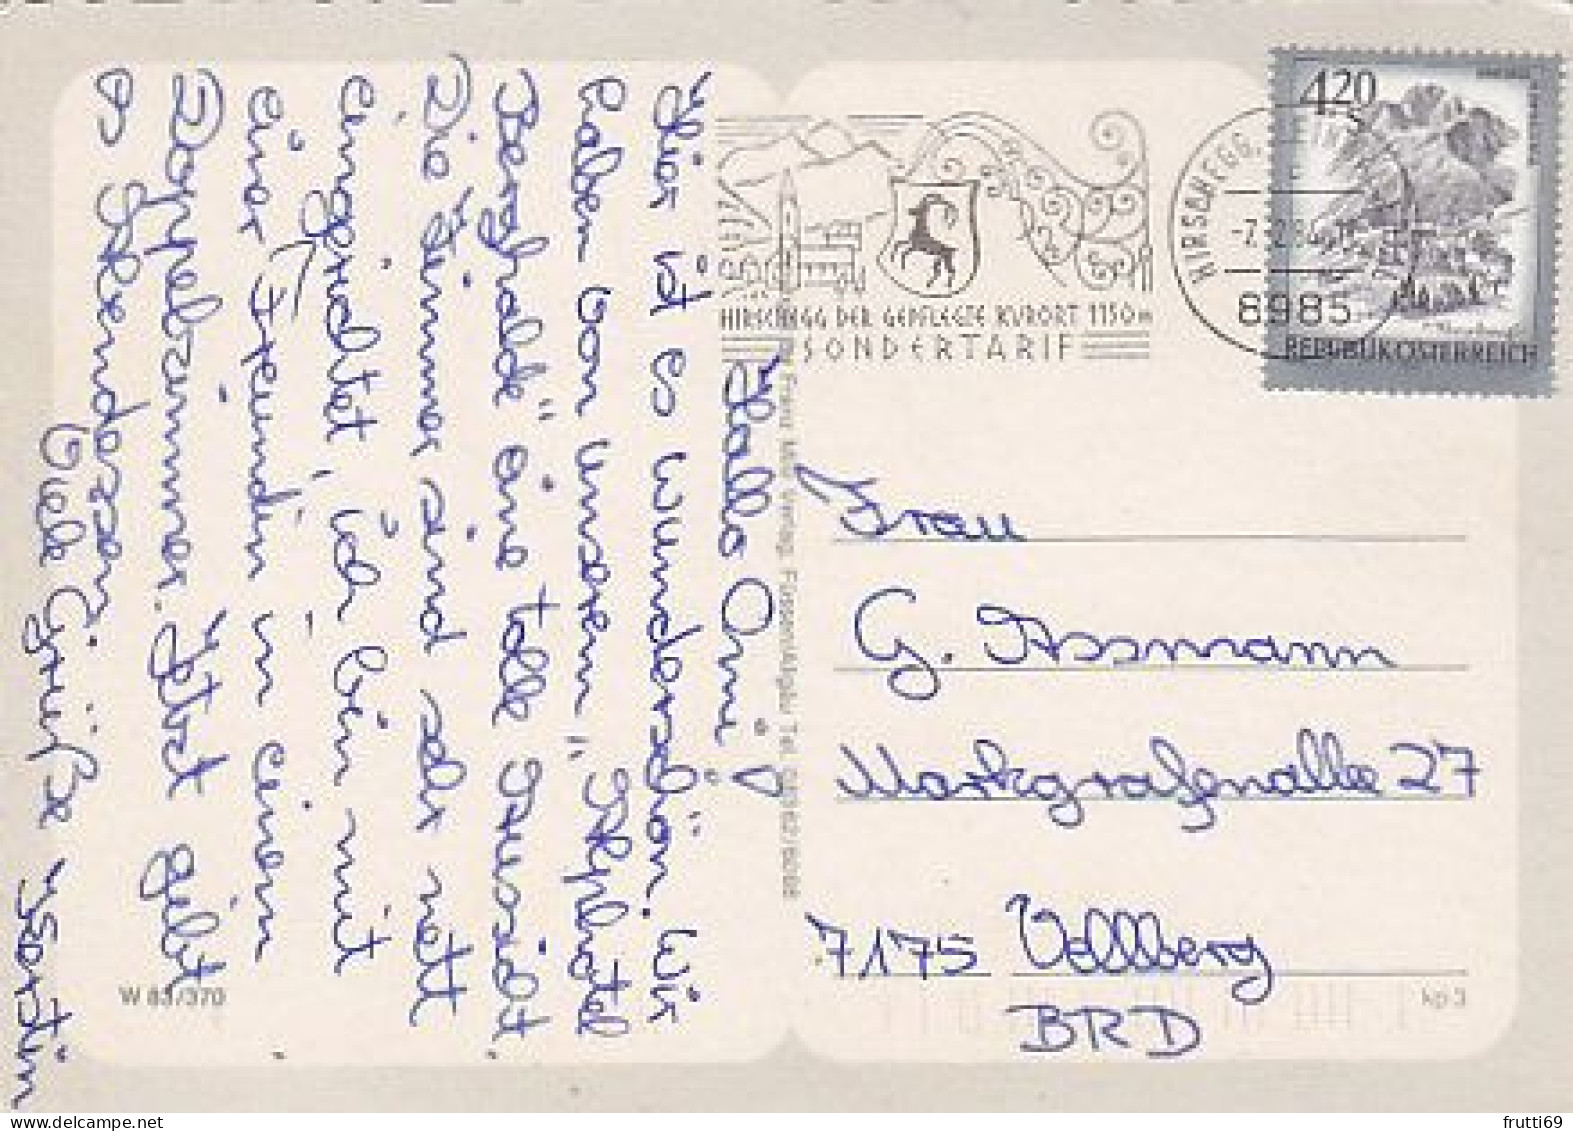 Hallo Omi,
Hier ist es wunderschön. Wir
haben von unserem „Alphotel
Berghalde" eine tolle Aussicht
Die Zimmer sind sehr nett
eingerichtet, ich bin mit
einer Freundin in einem
Doppelzimmer. Jetzt gibt
es Abendessen.
Viele Grüße Kerstin
HIRSCHEGG DER GEPFLEGTE KURORT 1150m
SONDERTARIF
HIRSCHEGG,
8985
420
REPUBLIK ÖSTERREICH
Franz Milz Verlag, Füssen/Allgäu Tel.
Frau
G. Assmann
Markgrafenallee 27
7175 Vellberg
BRD
W 83/370
kp 3
frutti69